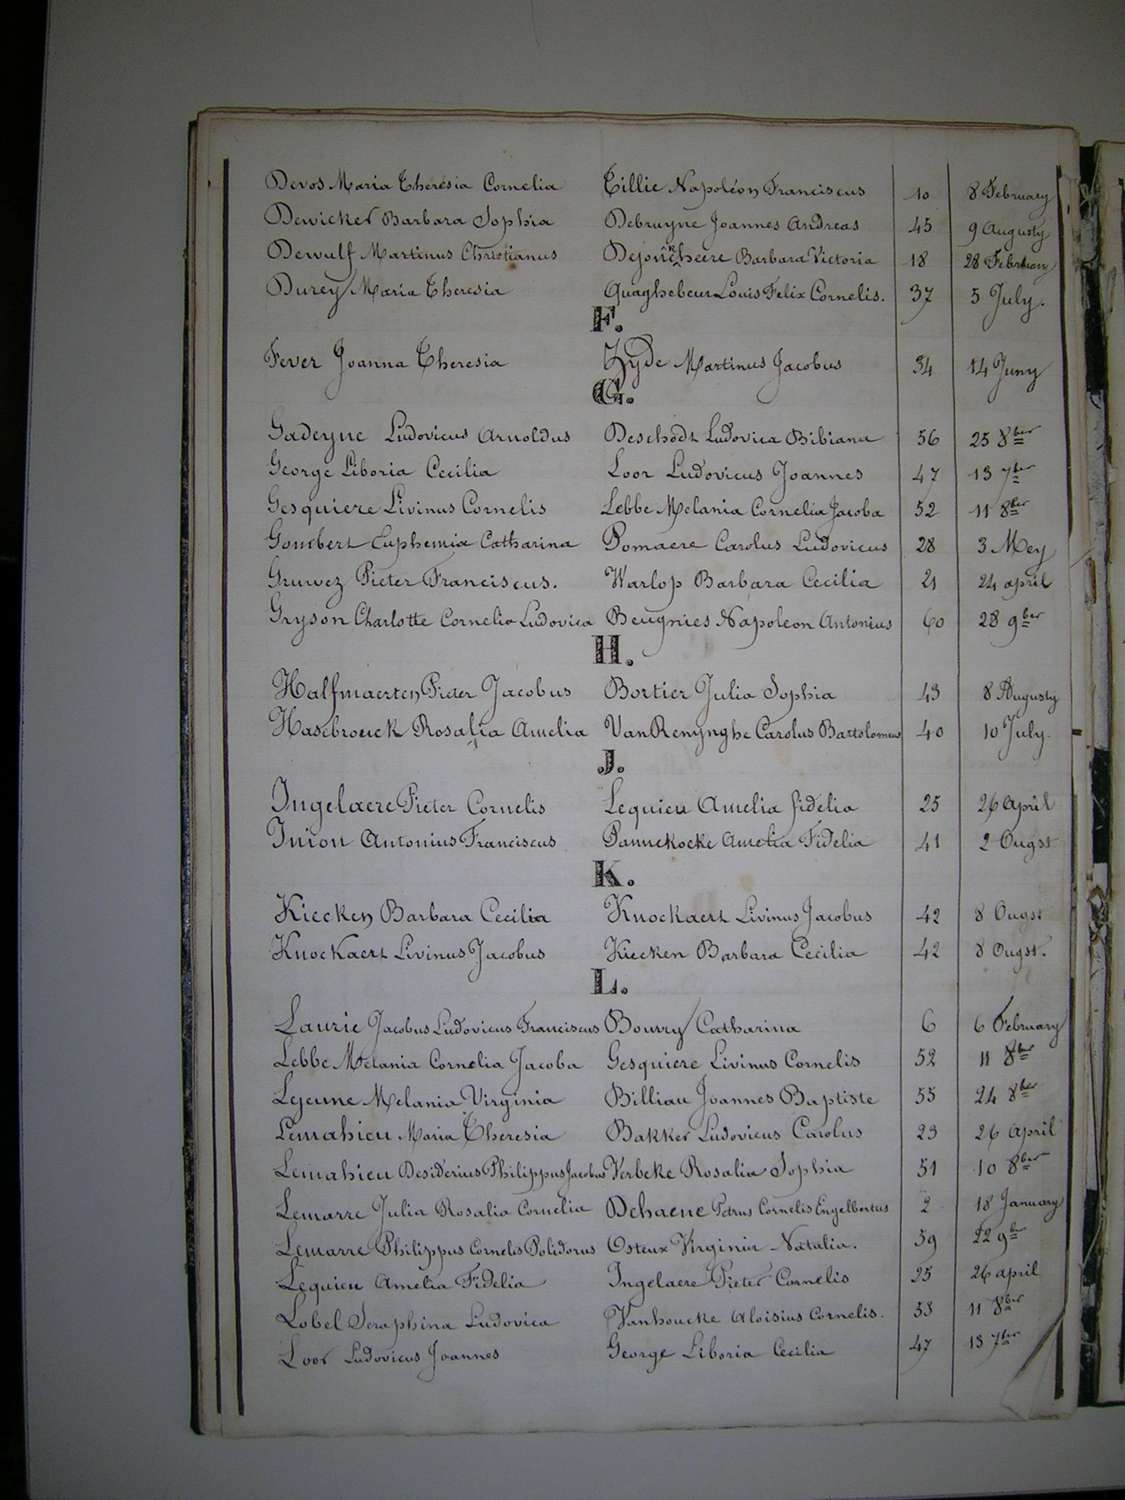 Devos Maria Theresia Cornelia Tillie Napoléon Franciscus 10 8 February
Dewicker Barbara Sophia Debruyne Joannes Andreas 45 9 Augusty
Dewulf Martinus Christianus Dejonckheere Barbara Victoria 18 28 February
Durey Maria Theresia Quaghebeur Louis Felix Cornelis. 37 5 July.
F.
Fever Joanna Theresia Zyde Martinus Jacobus 34 14 Juny
G.
Gadeyne Ludovicus Arnoldus Deschodt Ludovica Bibiana 56 25 8ber
George Liboria Cecilia Loor Ludovicus Joannes 47 13 7ber
Gesquiere Livinus Cornelis Lebbe Melania Cornelia Jacoba 52 11 8ber
Gombert Euphemia Catharina Pomaere Carolus Ludovicus 28 3 Mey
Gruwez Pieter Franciscus. Warlop Barbara Cecilia 21 24 april
Gryson Charlotte Cornelia Ludovica Beugnies Napoleon Antonius 60 28 9ber
H.
Halfmaerten Pieter Jacobus Bortier Julia Sophia 43 8 Augusty
Hasebrouck Rosalia Amelia VanRenynghe Carolus Bartolomeus 40 10 July.
J.
Ingelaere Pieter Cornelis Lequieu Amelia fidelia 25 26 April
Inion Antonius Franciscus Pannekoeke Amelia Fidelia 41 2 Ougst
K.
Kiecken Barbara Cecilia Knockaert Livinus Jacobus 42 8 Ougst
Knockaert Livinus Jacobus Kiecken Barbara Cecilia 42 8 Ougst.
L.
Laurie Jacobus Ludovicus Franciscus Bouvry Catharina 6 6 February
Lebbe Melania Cornelia Jacoba Gesquiere Livinus Cornelis 52 11 8ber
Lejeune Melania Virginia Billiau Joannes Baptiste 55 24 8ber
Lemahieu Maria Theresia Bakker Ludovicus Carolus 23 26 April
Lemahieu Desiderius Philippus Jacobus Verbeke Rosalia Sophia 51 10 8ber
Lemarre Julia Rosalia Cornelia Dehaene Petrus Cornelis Engelbertus 2 18 January
Lemarre Philippus Cornelis Polidorus Osteux Virginie Natalia. 59 22 9br
Lequieu Amelia Fidelia Ingelaere Pieter Cornelis 25 26 april
Lobel Seraphina Ludovica Vanhoucke Aloisius Cornelis. 53 11 8ber
Loor Ludovicus Joannes George Liboria Cecilia 47 13 7ber